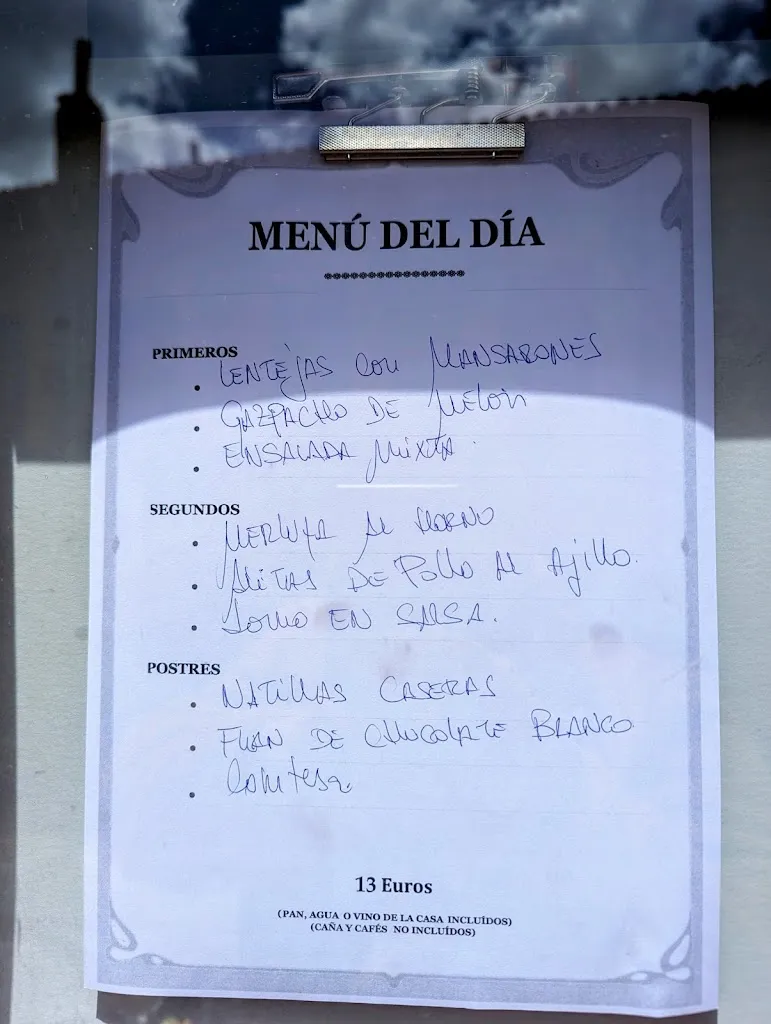 MENÚ DEL DÍA
PRIMEROS
• LENTEJAS CON MANSARONES
• GAZPACHO DE MELON
• ENSALADA MIXTA.
SEGUNDOS
• MERLUZA AL HORNO
• ALITAS DE POLLO AL AJILLO.
• LOMO EN SALSA.
POSTRES
• NATILLAS CASERAS
• FLAN DE CHOCOLATE BLANCO
• Comtesa
13 Euros
(PAN, AGUA O VINO DE LA CASA INCLUÍDOS)
(CAÑA Y CAFÉS NO INCLUÍDOS)